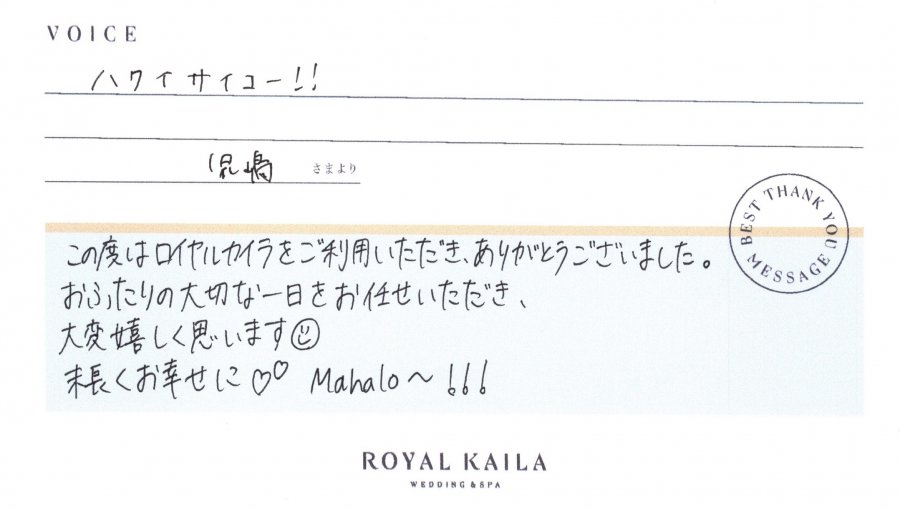 VOICE
ハワイサイコー!!
児嶋 さまより
BEST THANK YOU MESSAGE
この度はロイヤルカイラをご利用いただき、ありがとうございました。
おふたりの大切な一日をお任せいただき、
大変嬉しく思います☺
末長くお幸せに♡♡ Mahalo〜!!!
ROYAL KAILA
WEDDING & SPA